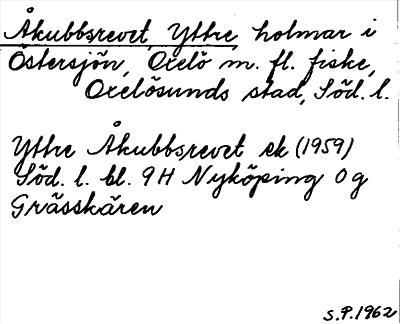 Åkubbsrevet, Yttre, holmar i
Östersjön, Oxelö m. fl. fiske,
Oxelösunds stad, Söd. l.
Yttre Åkubbsrevet ek (1959)
Söd. l. bl. 9H Nyköping 0g
Gråsskären
S.P.1962